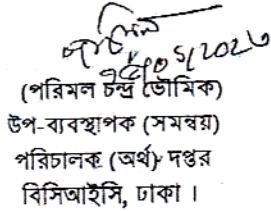 (পরিমল চন্দ্র ভৌমিক)
উপ-ব্যবস্থাপক (সমন্বয়)
পরিচালক (অর্থ) দপ্তর
বিসিআইসি, ঢাকা ।